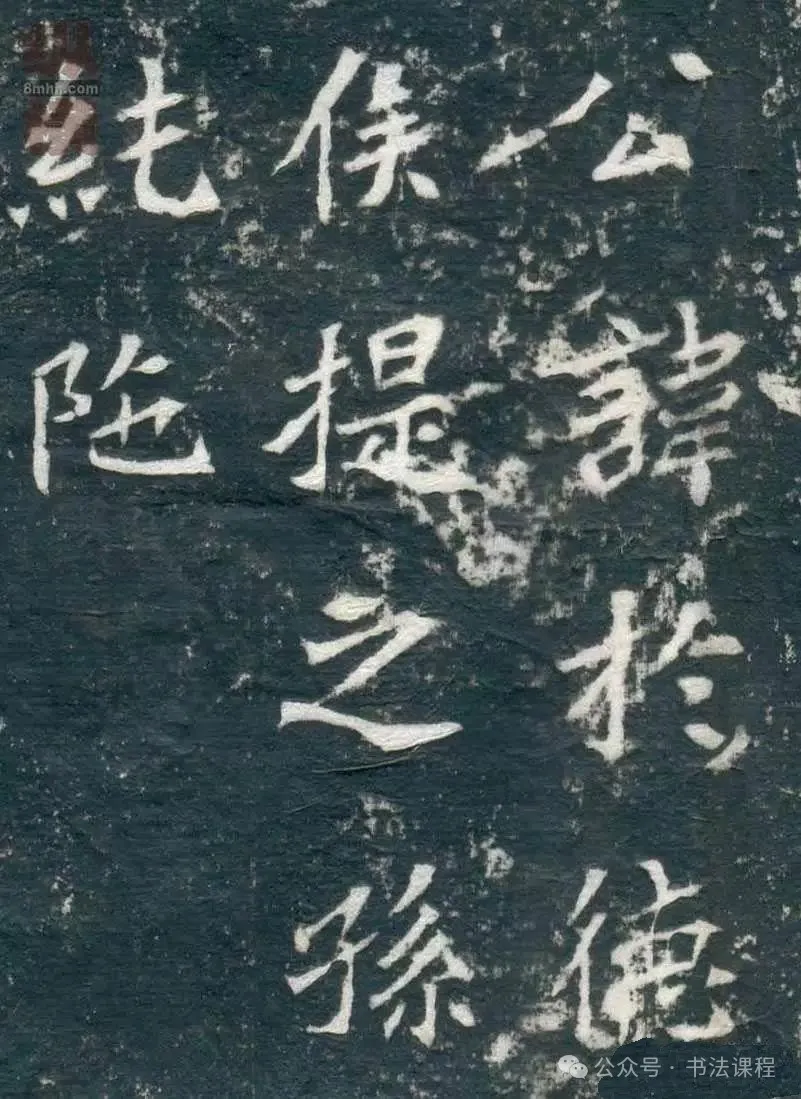 公諱於德
侯提之孫
純陁
8mhh.com
公众号 · 书法课程